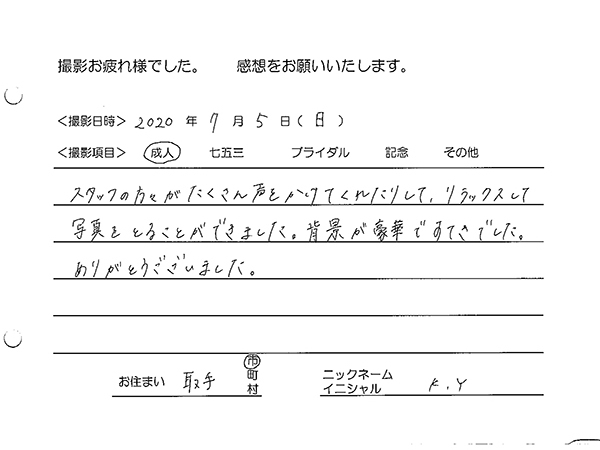 撮影お疲れ様でした。 感想をお願いいたします。
＜撮影日時＞ 2020 年 7 月 5 日 ( 日 )
＜撮影項目＞ 成人 七五三 ブライダル 記念 その他
スタッフの方々がたくさん声をかけてくれたりして、リラックスして
写真をとることができました。背景が豪華ですてきでした。
ありがとうございました。
お住まい 取手 市 町 村
ニックネーム イニシャル K.Y